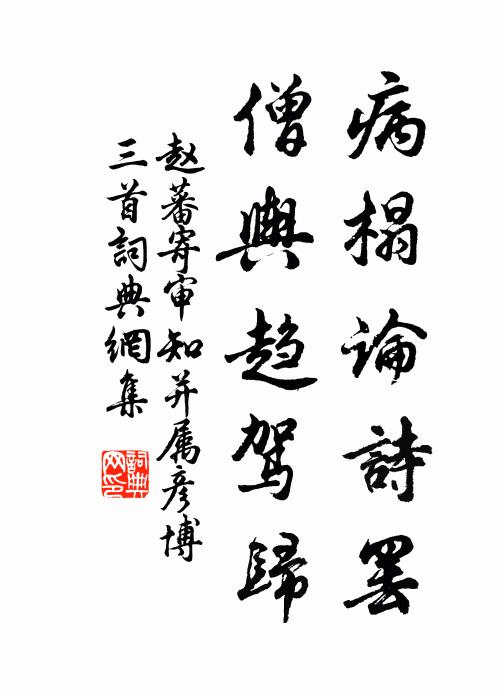 病榻論詩罷
僧輿趣駕歸
赵蕃寄审知并属彦博
三首詞典網集
詞典网印